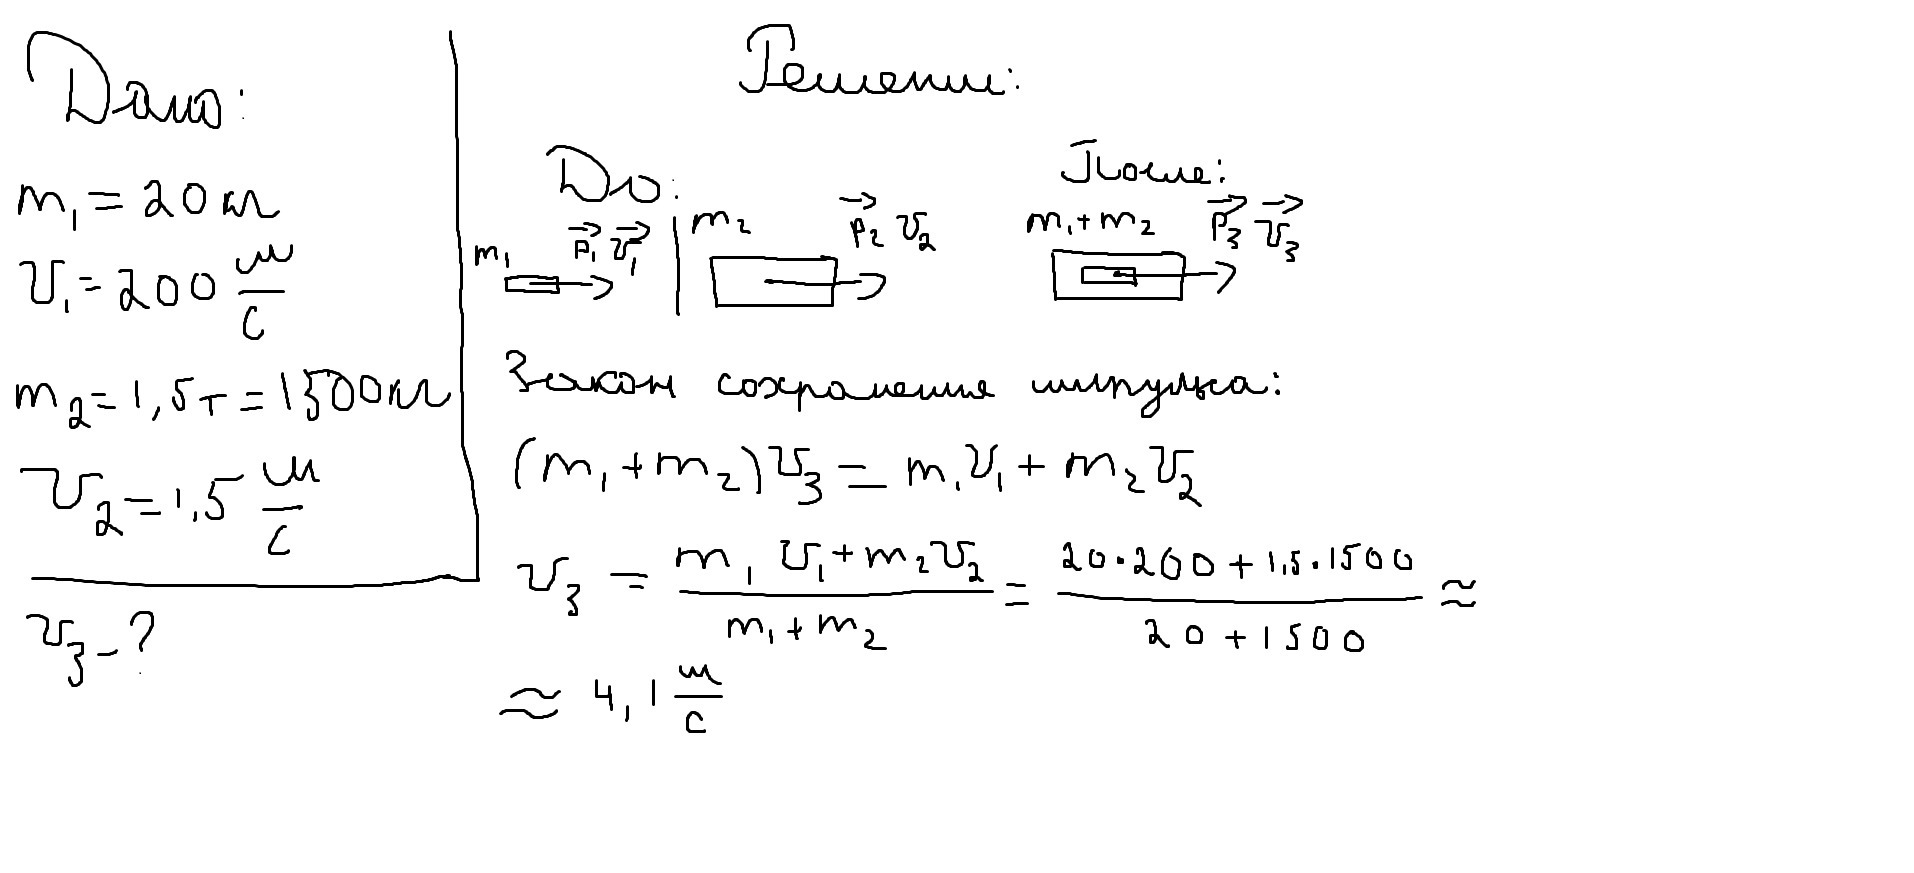 Дано:
m₁ = 20 кг
v₁ = 200 м/с
m₂ = 1,5 т = 1500 кг
v₂ = 1,5 м/с
v₃ - ?
Решение:
До:
m₁ p₁ v₁ | m₂ p₂ v₂
После:
m₁ + m₂ p₃ v₃
Закон сохранения импульса:
(m₁ + m₂) v₃ = m₁v₁ + m₂v₂
v₃ = (m₁ v₁ + m₂v₂)/(m₁ + m₂) = (20·200 + 1,5·1500)/(20 + 1500) ≈
≈ 4,1 м/с